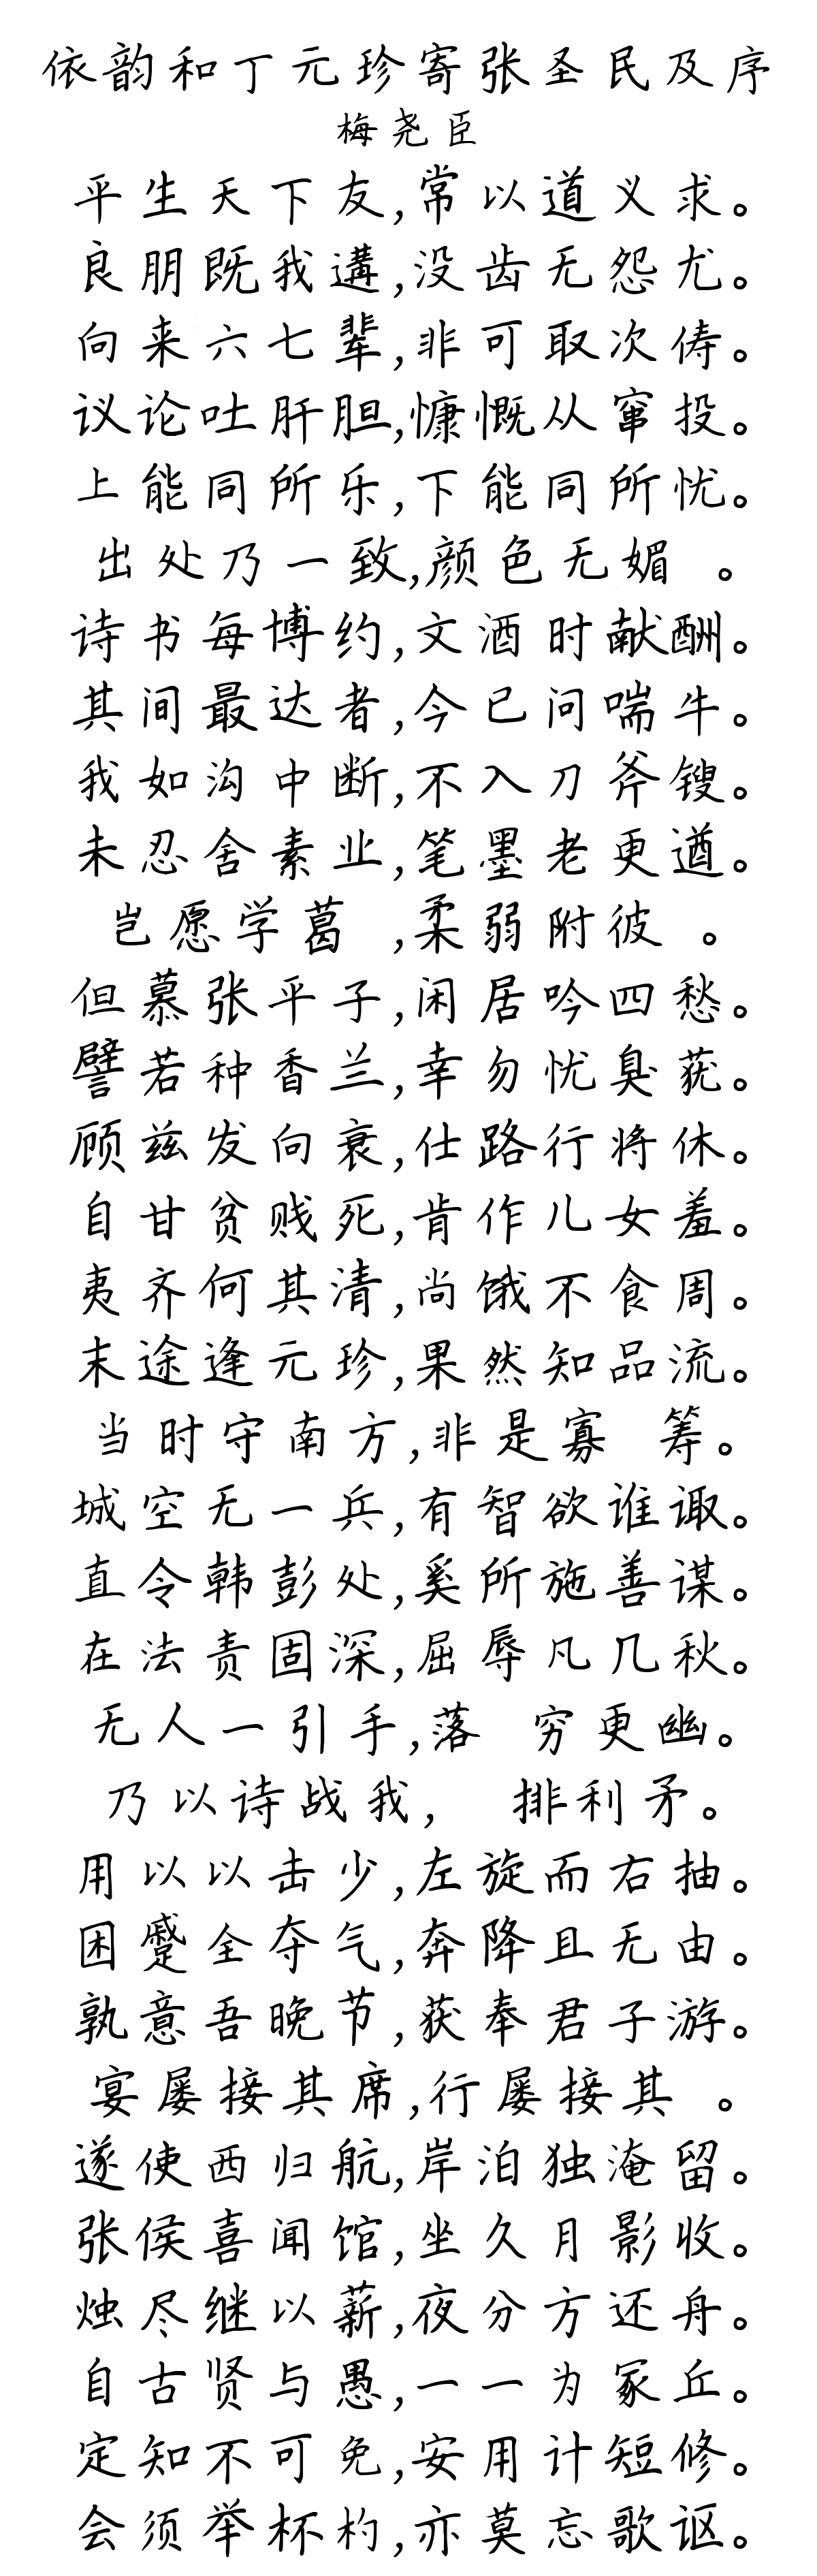 依韵和丁元珍寄张圣民及序
梅尧臣
平生天下友,常以道义求。
良朋既我遘,没齿无怨尤。
向来六七辈,非可取次俦。
议论吐肝胆,慷慨从窜投。
上能同所乐,下能同所忧。
出处乃一致,颜色无媚 。
诗书每博约,文酒时献酬。
其间最达者,今已问喘牛。
我如沟中断,不入刀斧锼。
未忍舍素业,笔墨老更遒。
岂愿学葛 ,柔弱附彼 。
但慕张平子,闲居吟四愁。
譬若种香兰,幸勿忧臭莸。
顾兹发向衰,仕路行将休。
自甘贫贱死,肯作儿女羞。
夷齐何其清,尚饿不食周。
末途逢元珍,果然知品流。
当时守南方,非是寡 筹。
城空无一兵,有智欲谁诹。
直令韩彭处,奚所施善谋。
在法责固深,屈辱凡几秋。
无人一引手,落 穷更幽。
乃以诗战我, 排利矛。
用以以击少,左旋而右抽。
困蹙全夺气,奔降且无由。
孰意吾晚节,获奉君子游。
宴屡接其席,行屡接其 。
遂使西归航,岸泊独淹留。
张侯喜闻馆,坐久月影收。
烛尽继以薪,夜分方还舟。
自古贤与愚,一一为冢丘。
定知不可免,安用计短修。
会须举杯杓,亦莫忘歌讴。